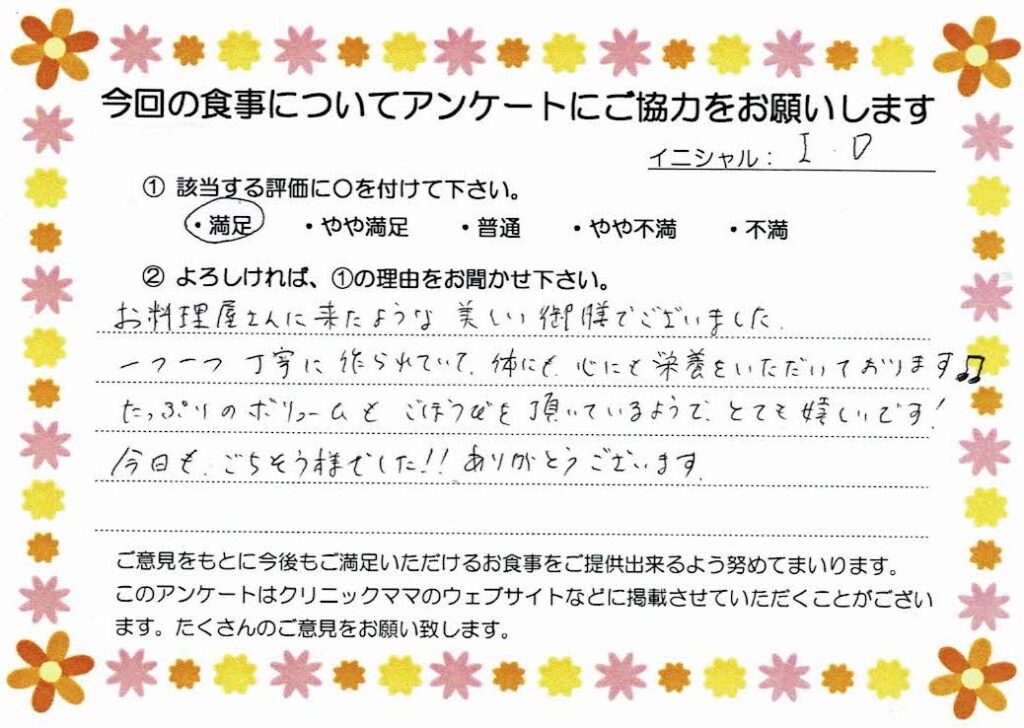 今回の食事についてアンケートにご協力をお願いします
イニシャル： I . D
① 該当する評価に○を付けて下さい。
・満足 ・やや満足 ・普通 ・やや不満 ・不満
② よろしければ、①の理由をお聞かせ下さい。
お料理屋さんに来たような 美しい御膳でございました.
一つ一つ 丁寧に 作られていて、体にも 心にも栄養をいただいております♫
たっぷりのボリュームも ごほうびを 頂いているようで、とても嬉しいです!
今日も、ごちそう様でした!! ありがとうございます.
ご意見をもとに今後もご満足いただけるお食事をご提供出来るよう努めてまいります。
このアンケートはクリニックママのウェブサイトなどに掲載させていただくことがござい
ます。たくさんのご意見をお願い致します。